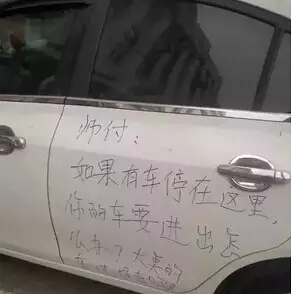 师付：
如果有车停在这里，
你的车要进出怎
么办？大桌的